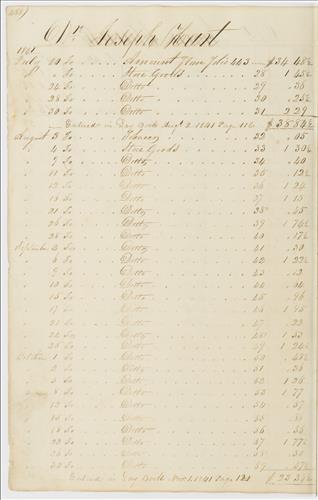 Dr Joseph Hunt
1841
July 20 To Amount from folio 443 $34 48½
" " To Store Goods 28 1 45½
24 To Ditto 29 .36
28 To Ditto 30 .25½
30 To Ditto 31 2 29
Entered in Day Book Augt 2 1841 Page 116 $38.84½
August 3 To 32 .05
4 To Store Goods 33 1 30½
9 To Ditto 34 .40
11 To Ditto 35 .12½
To Ditto 36 1 24
To Ditto 37 1 10
21 To Ditto 38 .45
26 To Ditto 39 1 76½
28 To Ditto 40 .17½
September To Ditto 41 .30
6 To Ditto 42 1 22½
9 To Ditto 43 .12
10 To Ditto 44 .04
15 To Ditto 45 .96
17 To Ditto 46 1 95
21 To Ditto 47 .23
To Ditto 48 1 33
28 To Ditto 49 1 24½
October 1 To Ditto 50 .48½
2 To Ditto 51 .36
5 To Ditto 52 1 26
8 To Ditto 53 1 77
12 To Ditto 54 .37
16 To Ditto 55
18 To Ditto 56
23 To Ditto 57 1 77½
26 To Ditto 58 .30
30 To Ditto 59
Entered in Day Book Nov 1 1841 Page 121 $23